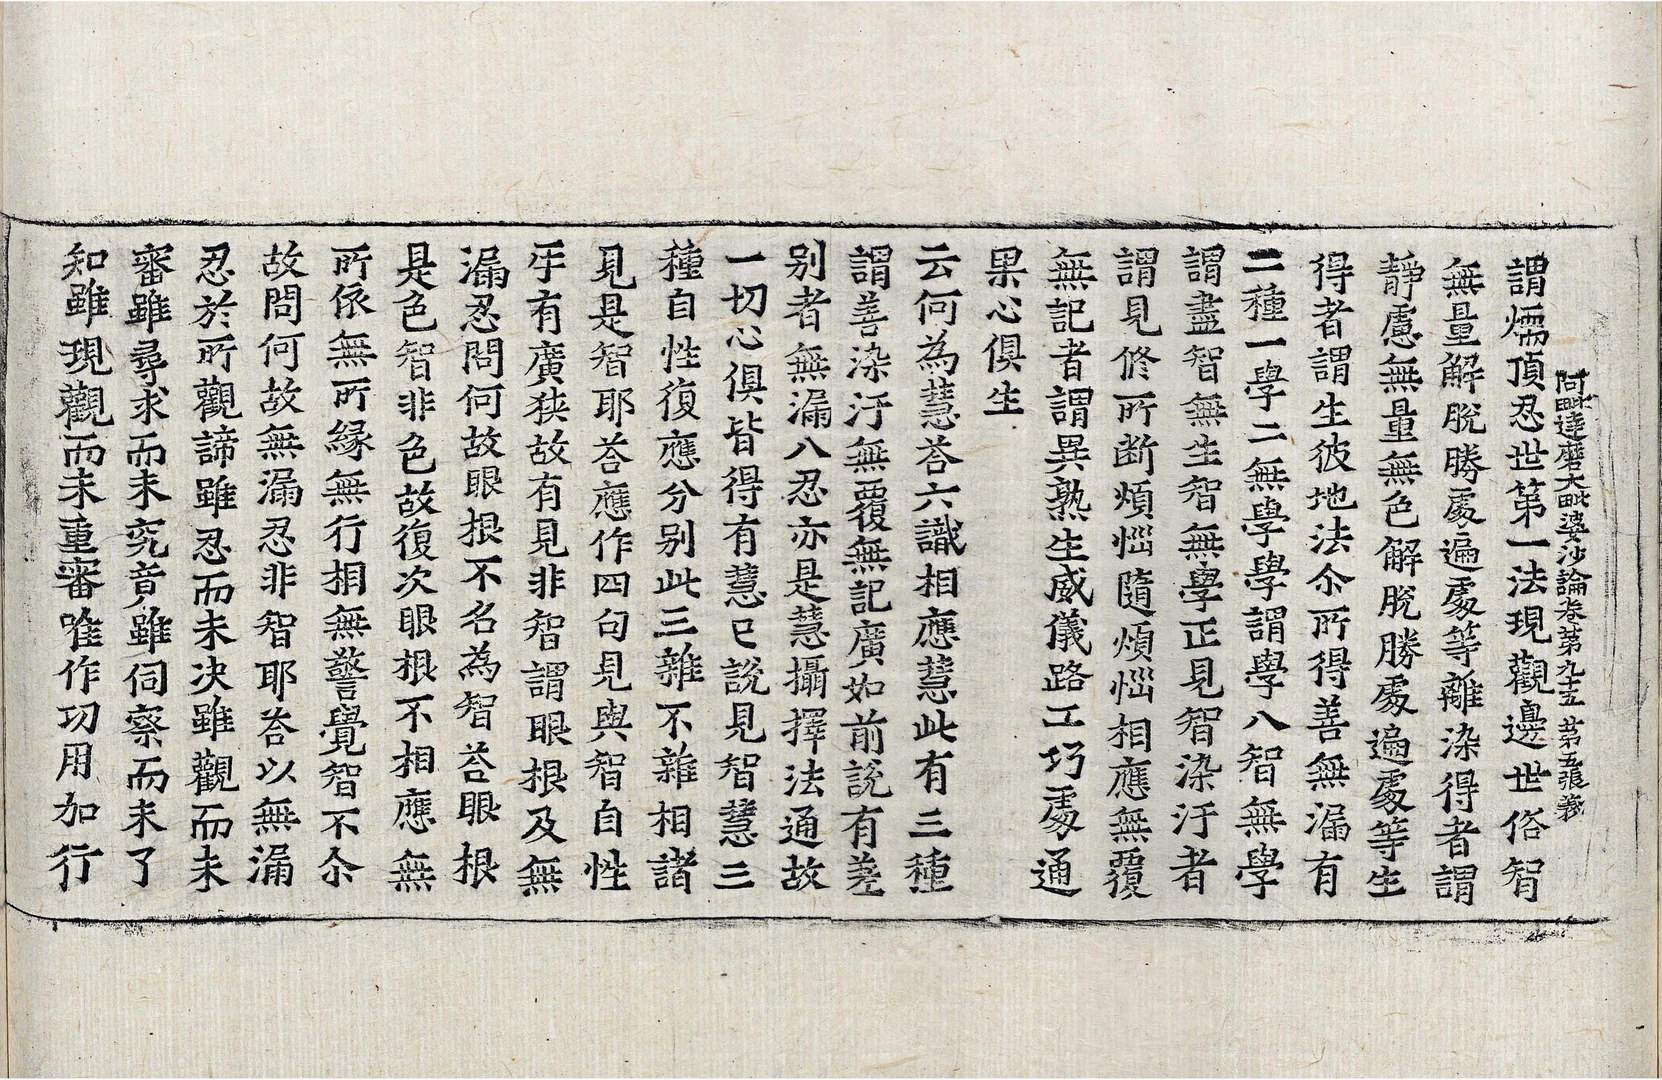 阿毗達磨大毗婆沙論卷第九十五 第五張 義
謂煗頂忍世第一法現觀邊世俗智
無量解脫勝處遍處等離染得者謂
靜慮無量無色解脫勝處遍處等生
得者謂生彼地法尒所得善無漏有
二種一學二無學學謂學八智無學
謂盡智無生智無學正見智染汙者
謂見修所断煩惱隨煩惱相應無覆
無記者謂異熟生威儀路工巧處通
果心俱生
云何為慧荅六識相應慧此有三種
謂善染汙無覆無記廣如前說有差
別者無漏八忍亦是慧攝擇法通故
一切心俱皆得有慧已說見智慧三
種自性復應分別此三雜不雜相諸
見是智耶荅應作四句見與智自性
㸦有廣狹故有見非智謂眼根及無
漏忍問何故眼根不名為智荅眼根
是色智非色故復次眼根不相應無
所依無所緣無行相無警覺智不尒
故問何故無漏忍非智耶荅以無漏
忍於所觀諦雖忍而未決雖觀而未
審雖尋求而未究竟雖伺察而未了
知雖現觀而未重審唯作功用加行